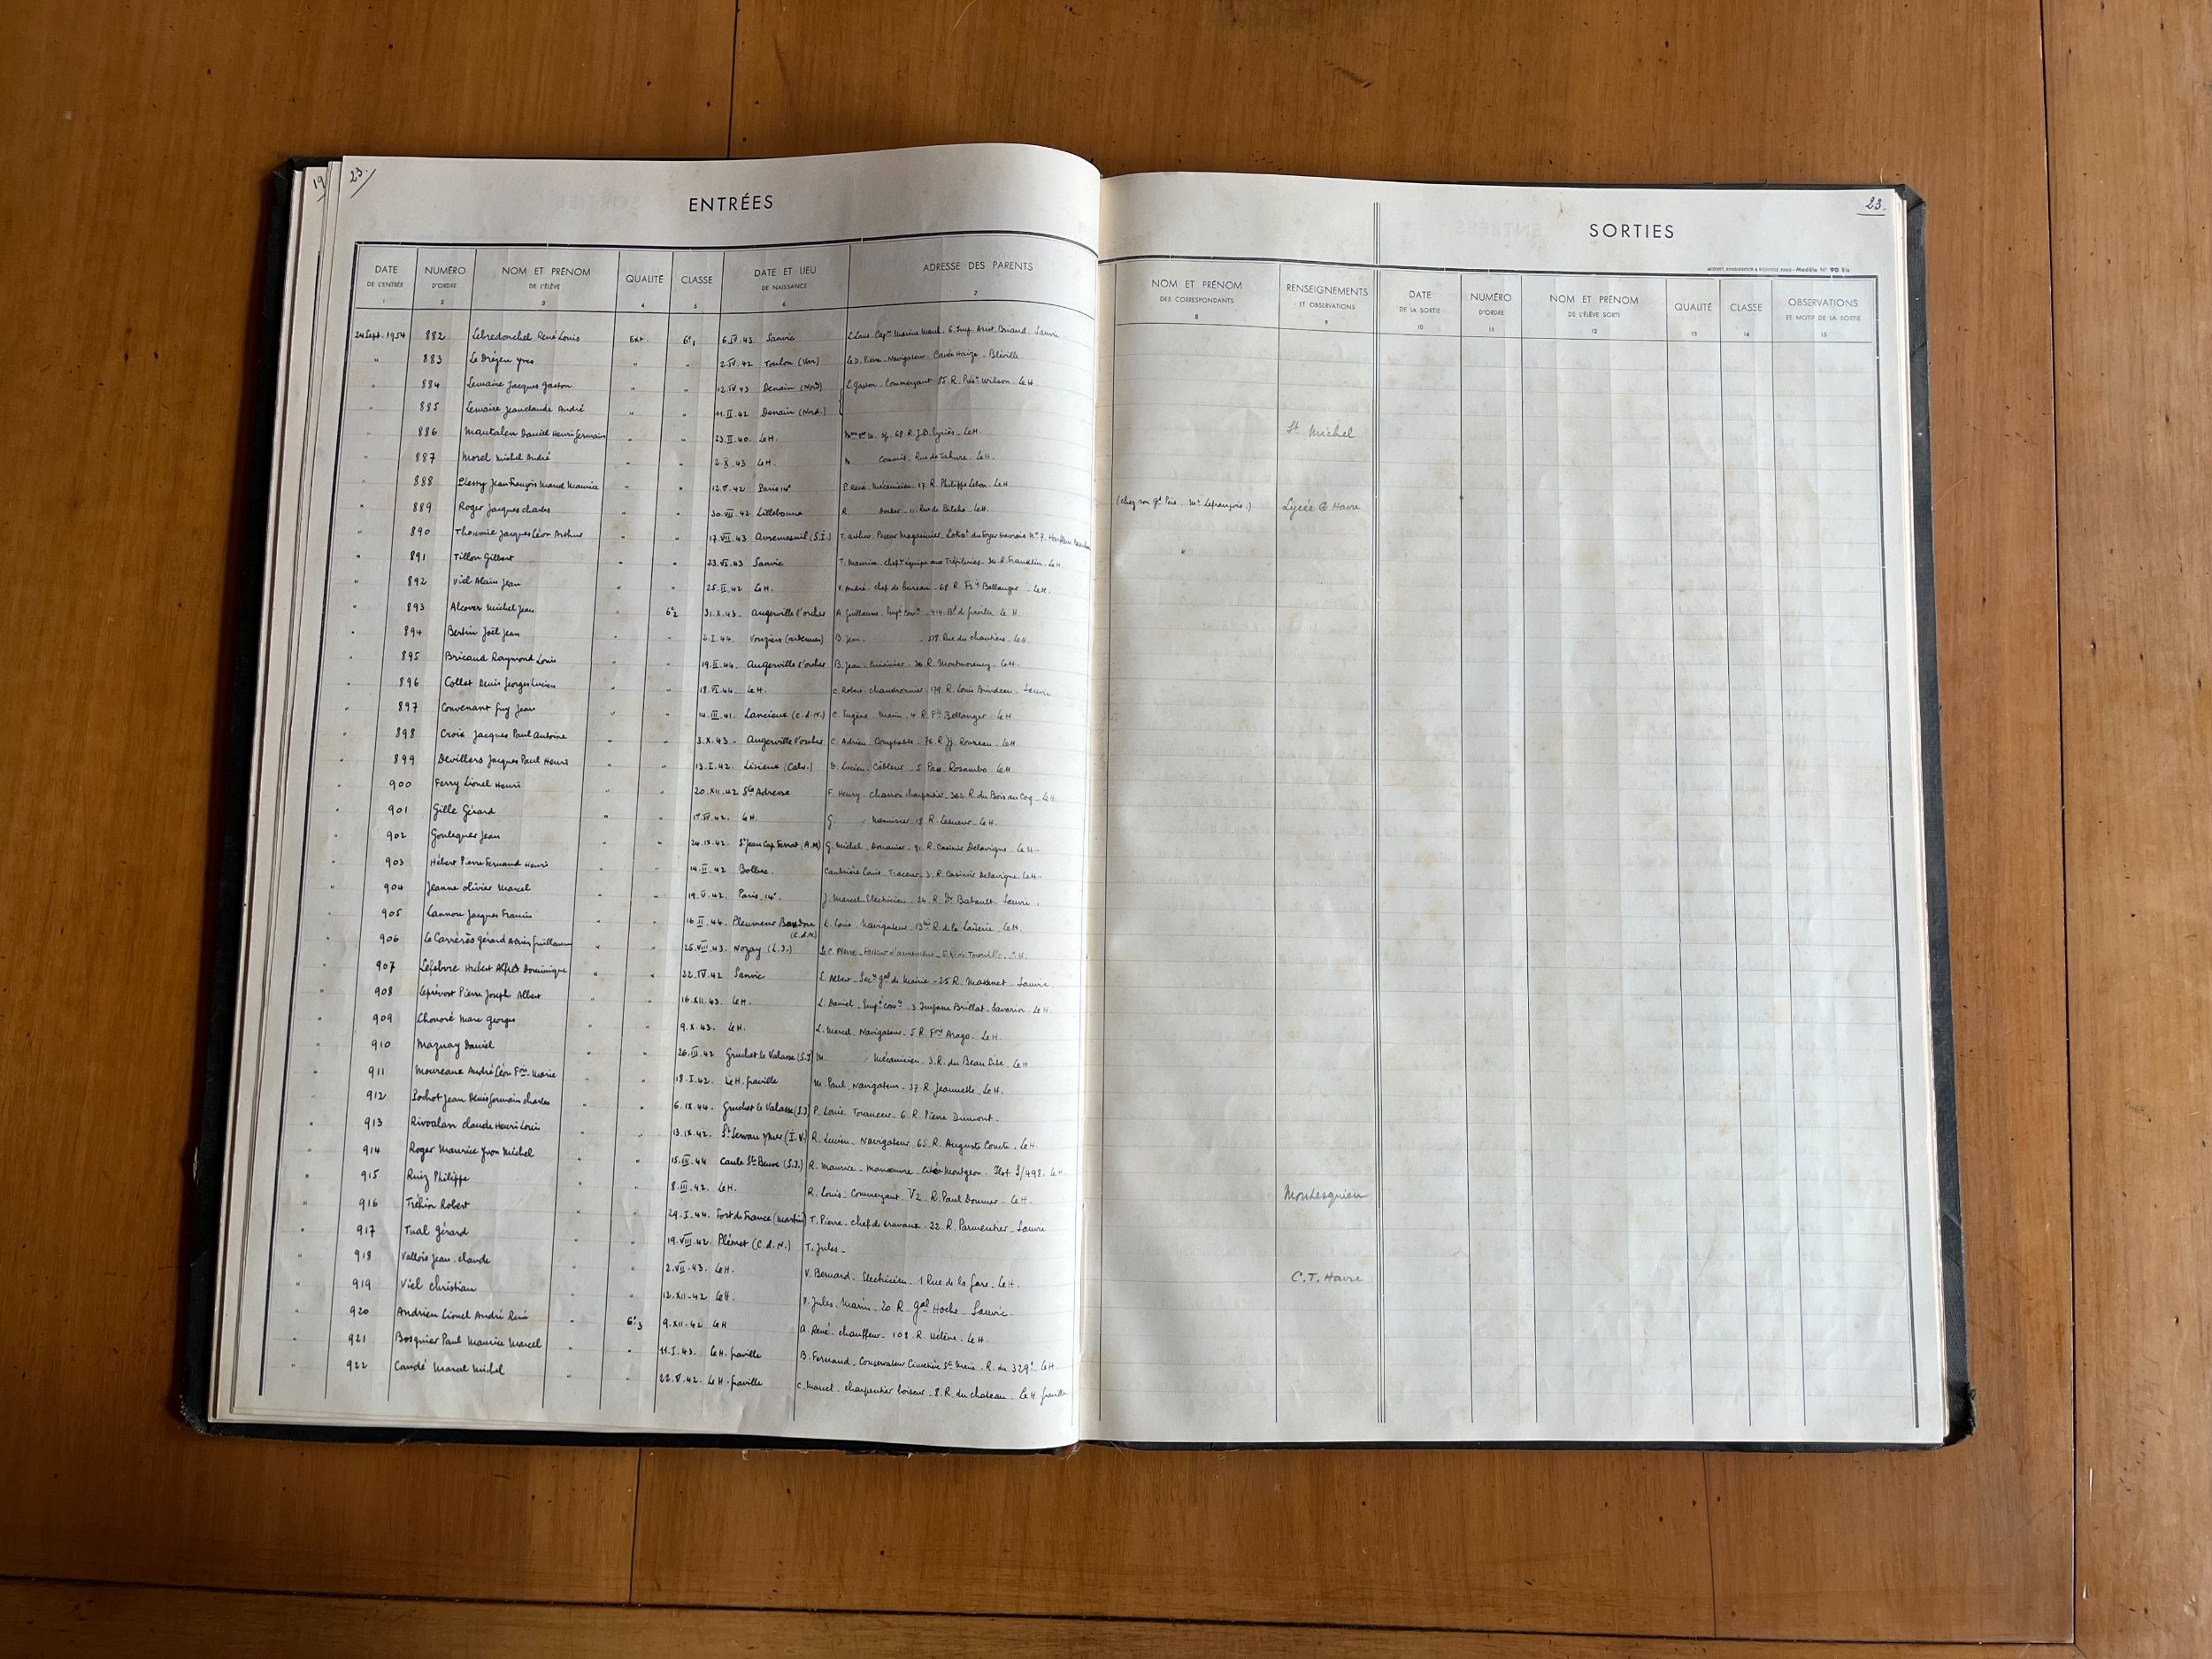 19
23.
ENTRÉES
DATE DE L'ENTRÉE 1 NUMÉRO D'ORDRE 2 NOM ET PRÉNOM DE L'ÉLÈVE 3 QUALITÉ 4 CLASSE 5 DATE ET LIEU DE NAISSANCE 6 ADRESSE DES PARENTS 7
24 Sept. 1954 882 Lebredonchel René Louis Ext. 6e1 6.IV.43 Sanvic L. Louis Capne Marine March. 6. Imp. Arist. Briand Sanvic
" 883 Le Drézen Yves " " 2.IV.42 Toulon (Var) Le D. Pierre Navigateur Bléville
" 884 Lemaire Jacques Gaston " " 12.IV.43 Denain (Nord) L. Gaston Commerçant 85 R. Pdt Wilson Le H
" 885 Lemaire Jean Claude André " " 11.II.42 Denain (Nord)
" 886 Mautalen Daniel Henri Germain " " 23.II.40 Le H. 68 R. J.B. Eyriès Le H.
" 887 Morel Michel André " " 2.X.43 Le H. M Commis Rue de Tahure Le H.
" 888 Plessy Jean François Maurice " " 12.V.42 Paris 14e P. René Mécanicien 17 R. Philippe Lebon Le H
" 889 Roger Jacques Charles " " 30.VII.42 Lillebonne R. Docker 11 Rue de Bitche Le H.
" 890 Thoumie Jacques Léon Arthur " " 17.VII.43 Avremesnil (S.I.) T. Arthur Magasinier N° 7
" 891 Tillon Gilbert " " 23.VI.43 Sanvic T. Maurice chef d'équipe aux Tréfileries 34 R. Franklin Le H
" 892 Viel Alain Jean " " 25.II.42 Le H. V. André chef de bureau 68 R. Fs Bellanger Le H.
" 893 Alcover Michel Jean " 6e2 31.X.43 Angerville l'orcher A. Guillaume Empé Comce 414 Bd de Graville Le H.
" 894 Bertin Joël Jean " " 2.I.44 Vouziers (Ardennes) B. Jean Le H.
" 895 Bricaud Raymond Louis " " 19.II.44 Angerville l'orcher B. Jean Cuisinier 36 R. Montmorency Le H.
" 896 Collet Denis Georges Lucien " " 18.VI.44 Le H. C. Robert chaudronnier 179 R. Louis Brindeau Sanvic
" 897 Convenant Guy Jean " " 14.III.41 Lancieux (C.d.N.) C. Eugène Marin 4 R. Fs Bellanger Le H.
" 898 Croix Jacques Paul Antoine " " 3.X.43 Angerville l'orcher C. Adrien Comptable 76 R. JJ. Rousseau Le H
" 899 Devillers Jacques Paul Henri " " 13.I.42 Lisieux (Calv.) D. Lucien Câbleur 5 Pass. Rosambo Le H
" 900 Ferry Lionel Henri " " 20.XII.42 Ste Adresse F. Henry Charron charpentier 362 R. du Bois au Coq Le H
" 901 Gille Gérard " " Le H. G. Menuisier 18 R. Lesueur Le H.
" 902 Goulequer Jean " " 24.IX.42 St Jean Cap Ferrat (A.M) G. Michel Douanier 91 R. Casimir Delavigne Le H
" 903 Hébert Pierre Fernand Henri " " 14.II.42 Bolbec Louis Traceur 3 R. Casimir Delavigne Le H
" 904 Jeanne Olivier Marcel " " 19.V.42 Paris 14e J. Marcel Electricien 24 R. Dr Babault Sanvic
" 905 Lannou Jacques Francis " " 16.II.44 Pleumeur Bodou (C.d.N.) L. Louis Navigateur Le H.
" 906 Le Carrérès Gérard Guillaume " " 25.VIII.43 Nozay (L.I.) Le C. Pierre
" 907 Lefebvre Hubert Alfred Dominique " " 22.IV.42 Sanvic L. Albert Secre gal de Mairie 25 R. Massenet Sanvic
" 908 Leprévost Pierre Joseph Albert " " 16.XII.43 Le H. L. Daniel Empé comce 3 Impasse Brillat Savarin Le H
" 909 Lhonoré Marc Georges " " 9.X.43 Le H. L. Marcel Navigateur 5 R. Fois Arago Le H.
" 910 Mazuay Daniel " " 26.III.42 Gruchet le Valasse (S.I) M. Mécanicien 3 R. du Beau Site Le H
" 911 Moureaux André Léon Fois Marie " " 18.I.42 Le H. Graville M. Paul Navigateur 37 R. Jeannette Le H.
" 912 Pochot Jean Denis Germain Charles " " 6.IX.44 Gruchet le Valasse (S.I) P. Louis Tourneur 6 R. Pierre Dumont.
" 913 Rivoalan Claude Henri Louis " " 13.IX.42 St Servan s/mer (I.V.) R. Lucien Navigateur 65 R. Auguste Comte Le H.
" 914 Roger Maurice Yvon Michel " " 15.III.44 Caule Ste Beuve (S.I.) R. Maurice Manoeuvre Cité Montgeon Ilot I/498 Le H.
" 915 Ruiz Philippe " " 8.III.42 Le H. R. Louis Commerçant V2 R. Paul Doumer Le H.
" 916 Tréhin Robert " " 29.I.44 Fort de France (Martin) T. Pierre chef de travaux 22 R. Parmentier Sanvic
" 917 Tual Gérard " " 19.VIII.42 Plémet (C.d.N.) T. Jules
" 918 Vallois Jean Claude " " 2.VII.43 Le H. V. Bernard Electricien 1 Rue de la Gare Le H.
" 919 Viel Christian " " 12.XII.42 Le H. V. Jules Marin 20 R. Gal Hoche Sanvic
" 920 Andrieu Lionel André René " 6e3 9.XII.42 Le H A. René chauffeur 108 R. Hélène Le H
" 921 Bosquier Paul Maurice Marcel " " 11.I.43 Le H. Graville B. Fernand Conservateur Cimetière Ste Marie R. du 329e Le H
" 922 Caudé Marcel Michel " " 22.V.42 Le H. Graville C. Marcel charpentier boiseur 8 R. du chateau Le H Graville
23.
SORTIES
Modèle N° 90 Bis
NOM ET PRÉNOM DES CORRESPONDANTS 8 RENSEIGNEMENTS ET OBSERVATIONS 9 DATE DE LA SORTIE 10 NUMÉRO D'ORDRE 11 NOM ET PRÉNOM DE L'ÉLÈVE SORTI 12 QUALITÉ 13 CLASSE 14 OBSERVATIONS ET MOTIF DE LA SORTIE 15
St Michel
(chez son gd Père Mr Lefrançois) Lycée G Havre
Montesquieu
C.T. Havre